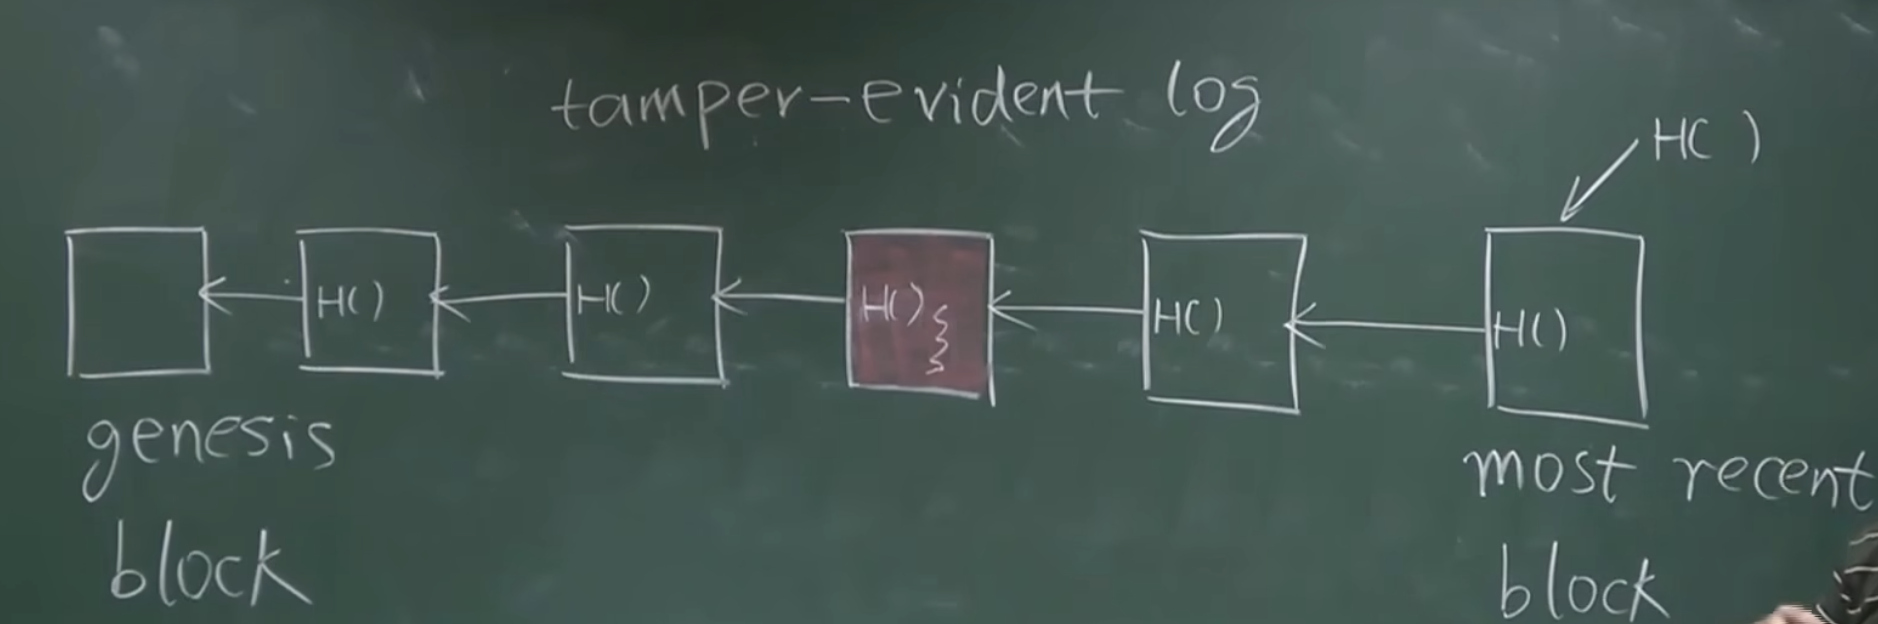 tamper-evident log
H( )
H()
H()
H()
H()
H()
genesis
block
most recent
block